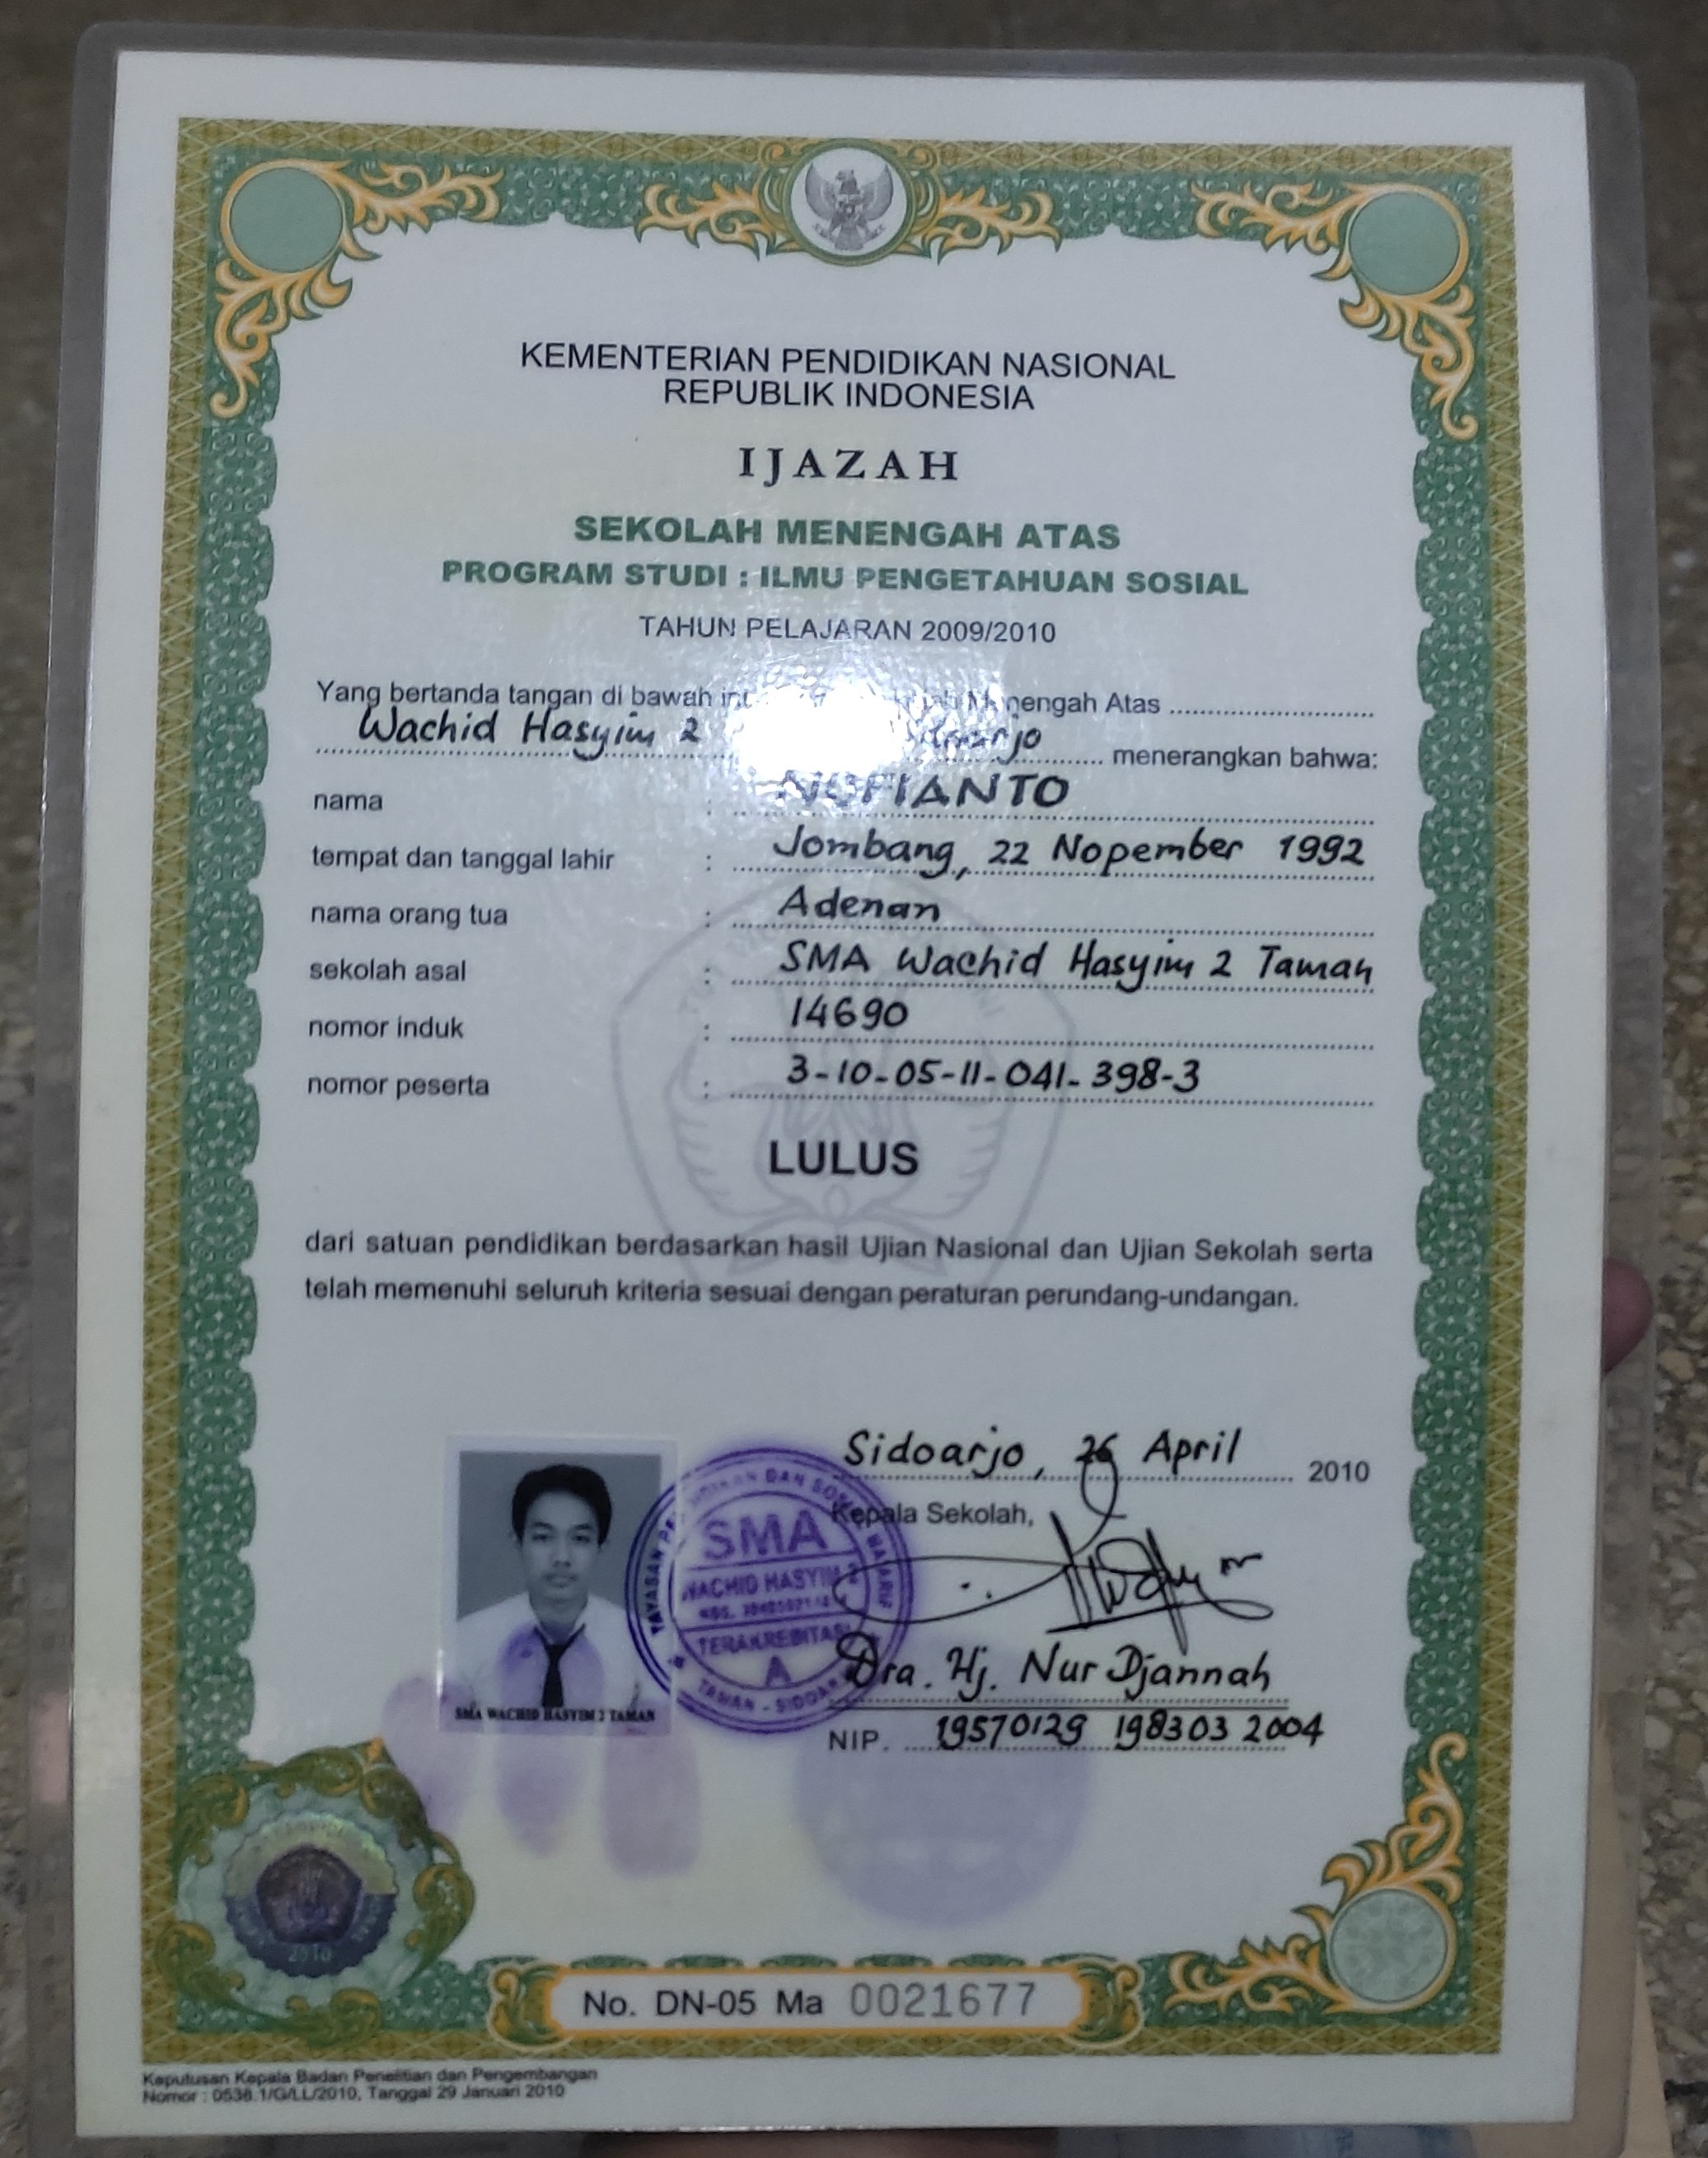 KEMENTERIAN PENDIDIKAN NASIONAL
REPUBLIK INDONESIA
IJAZAH
SEKOLAH MENENGAH ATAS
PROGRAM STUDI : ILMU PENGETAHUAN SOSIAL
TAHUN PELAJARAN 2009/2010
Yang bertanda tangan di bawah Menengah Atas
Wachid Hasyim 2 menerangkan bahwa:
nama : NOFIANTO
tempat dan tanggal lahir : Jombang, 22 Nopember 1992
nama orang tua : Adenan
sekolah asal : SMA Wachid Hasyim 2 Taman
nomor induk : 14690
nomor peserta : 3-10-05-11-041-398-3
LULUS
dari satuan pendidikan berdasarkan hasil Ujian Nasional dan Ujian Sekolah serta
telah memenuhi seluruh kriteria sesuai dengan peraturan perundang-undangan.
Sidoarjo, 26 April 2010
Kepala Sekolah,
SMA
WACHID HASYIM 2
TERAKREDITASI
A
TAMAN - SIDOARJO
SMA WACHID HASYIM 2 TAMAN
Dra. Hj. Nur Djannah
NIP. 19570129 198303 2004
2010
No. DN-05 Ma 0021677
Keputusan Kepala Badan Penelitian dan Pengembangan
Nomor : 0538.1/G/LL/2010, Tanggal 29 Januari 2010